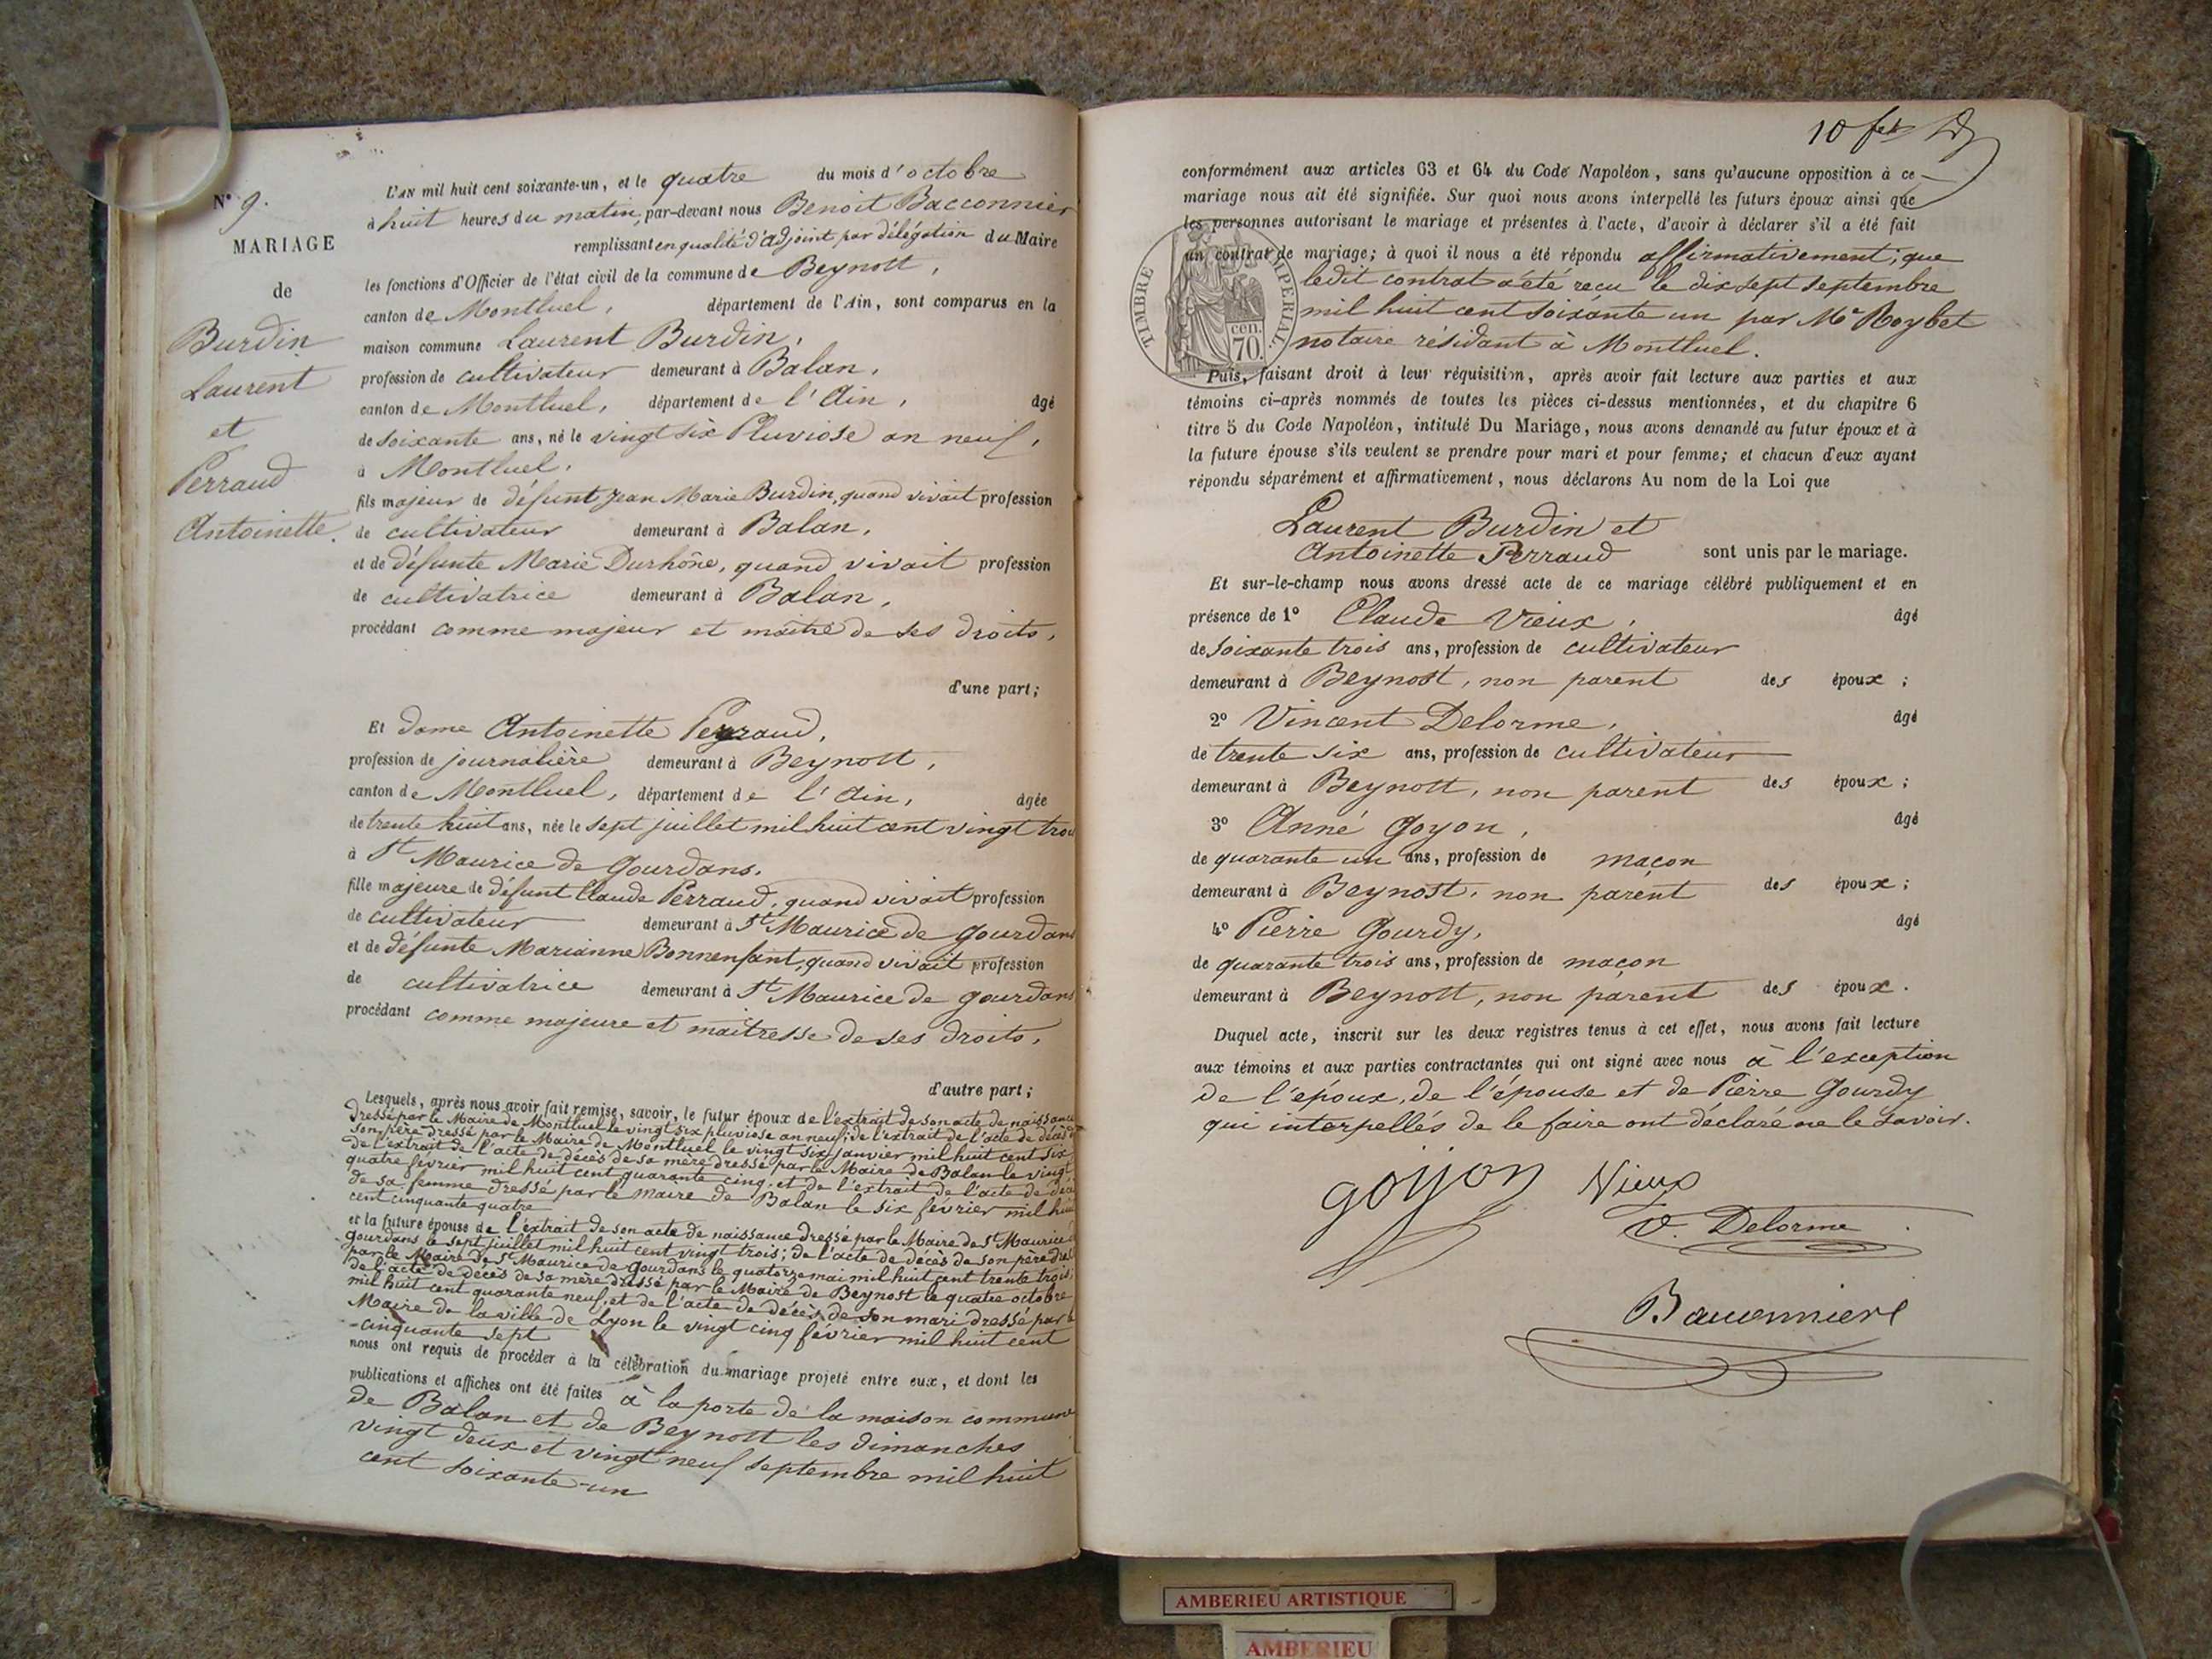 N° 9.
MARIAGE
de
Burdin
Laurent
et
Perraud
Antoinette.
L'AN mil huit cent soixante-un, et le quatre du mois d'octobre
à huit heures du matin, par-devant nous Benoit Bacconnier
remplissant en qualité d'adjoint par délégation du Maire
les fonctions d'Officier de l'état civil de la commune de Beynost,
canton de Montluel, département de l'Ain, sont comparus en la
maison commune Laurent Burdin,
profession de cultivateur demeurant à Balan,
canton de Montluel, département de l'Ain, âgé
de soixante ans, né le vingt six Pluviose an neuf,
à Montluel,
fils majeur de défunt Jean Marie Burdin, quand vivait profession
de cultivateur demeurant à Balan,
et de défunte Marie Durhône, quand vivait profession
de cultivatrice demeurant à Balan,
procédant comme majeur et maître de ses droits,
d'une part;
Et dame Antoinette Perraud,
profession de journalière demeurant à Beynost,
canton de Montluel, département de l'Ain, âgée
de trente huit ans, née le sept juillet mil huit cent vingt trois
à St Maurice de Gourdans.
fille majeure de défunt Claude Perraud, quand vivait profession
de cultivateur demeurant à St Maurice de Gourdans
et de défunte Marianne Bonnenfant, quand vivait profession
de cultivatrice demeurant à St Maurice de gourdans
procédant comme majeure et maîtresse de ses droits,
d'autre part;
Lesquels, après nous avoir fait remise, savoir, le futur époux de l'extrait de son acte de naissance
dressé par le Maire de Montluel le vingt six pluviose an neuf; de l'extrait de l'acte de décès de
son père dressé par le Maire de Montluel le vingt six janvier mil huit cent six
de l'extrait de l'acte de décès de sa mère dressé par le Maire de Balan le vingt
quatre février mil huit cent quarante cinq, et de l'extrait de l'acte de décès
de sa femme dressé par le maire de Balan le six février mil huit
cent cinquante quatre
et la future épouse de l'extrait de son acte de naissance dressé par le Maire de St Maurice de
gourdans le sept juillet mil huit cent vingt trois; de l'acte de décès de son père dressé
par le Maire de St Maurice de Gourdans le quatorze mai mil huit cent trente trois;
de l'acte de décès de sa mère dressé par le Maire de Beynost le quatre octobre
mil huit cent quarante neuf, et de l'acte de décès de son mari dressé par le
Maire de la ville de Lyon le vingt cinq février mil huit cent
-cinquante sept
nous ont requis de procéder à la célébration du mariage projeté entre eux, et dont les
publications et affiches ont été faites à la porte de la maison commune
de Balan et de Beynost les dimanches
vingt deux et vingt neuf septembre mil huit
cent soixante-un
conformément aux articles 63 et 64 du Code Napoléon, sans qu'aucune opposition à ce
mariage nous ait été signifiée. Sur quoi nous avons interpellé les futurs époux ainsi que
les personnes autorisant le mariage et présentes à l'acte, d'avoir à déclarer s'il a été fait
un contrat de mariage; à quoi il nous a été répondu affirmativement; que
ledit contrat a été reçu le dix sept septembre
mil huit cent soixante un par Me Roybet
notaire résidant à Montluel.
TIMBRE IMPERIAL.
cen.
70.
Puis, faisant droit à leur réquisition, après avoir fait lecture aux parties et aux
témoins ci-après nommés de toutes les pièces ci-dessus mentionnées, et du chapitre 6
titre 5 du Code Napoléon, intitulé Du Mariage, nous avons demandé au futur époux et à
la future épouse s'ils veulent se prendre pour mari et pour femme; et chacun d'eux ayant
répondu séparément et affirmativement, nous déclarons Au nom de la Loi que
Laurent Burdin et
Antoinette Perraud sont unis par le mariage.
Et sur-le-champ nous avons dressé acte de ce mariage célébré publiquement et en
présence de 1° Claude Vieux, âgé
de soixante trois ans, profession de cultivateur
demeurant à Beynost, non parent des époux;
2° Vincent Delorme, âgé
de trente six ans, profession de cultivateur
demeurant à Beynost, non parent des époux;
3° Anné Goyon, âgé
de quarante un ans, profession de maçon
demeurant à Beynost, non parent des époux;
4° Pierre Gourdy, âgé
de quarante trois ans, profession de maçon
demeurant à Beynost, non parent des époux.
Duquel acte, inscrit sur les deux registres tenus à cet effet, nous avons fait lecture
aux témoins et aux parties contractantes qui ont signé avec nous à l'exception
de l'époux, de l'épouse et de Pierre Gourdy
qui interpellés de le faire ont déclaré ne le savoir.
goyon Vieux
V. Delorme
AMBERIEU ARTISTIQUE
AMBERIEU